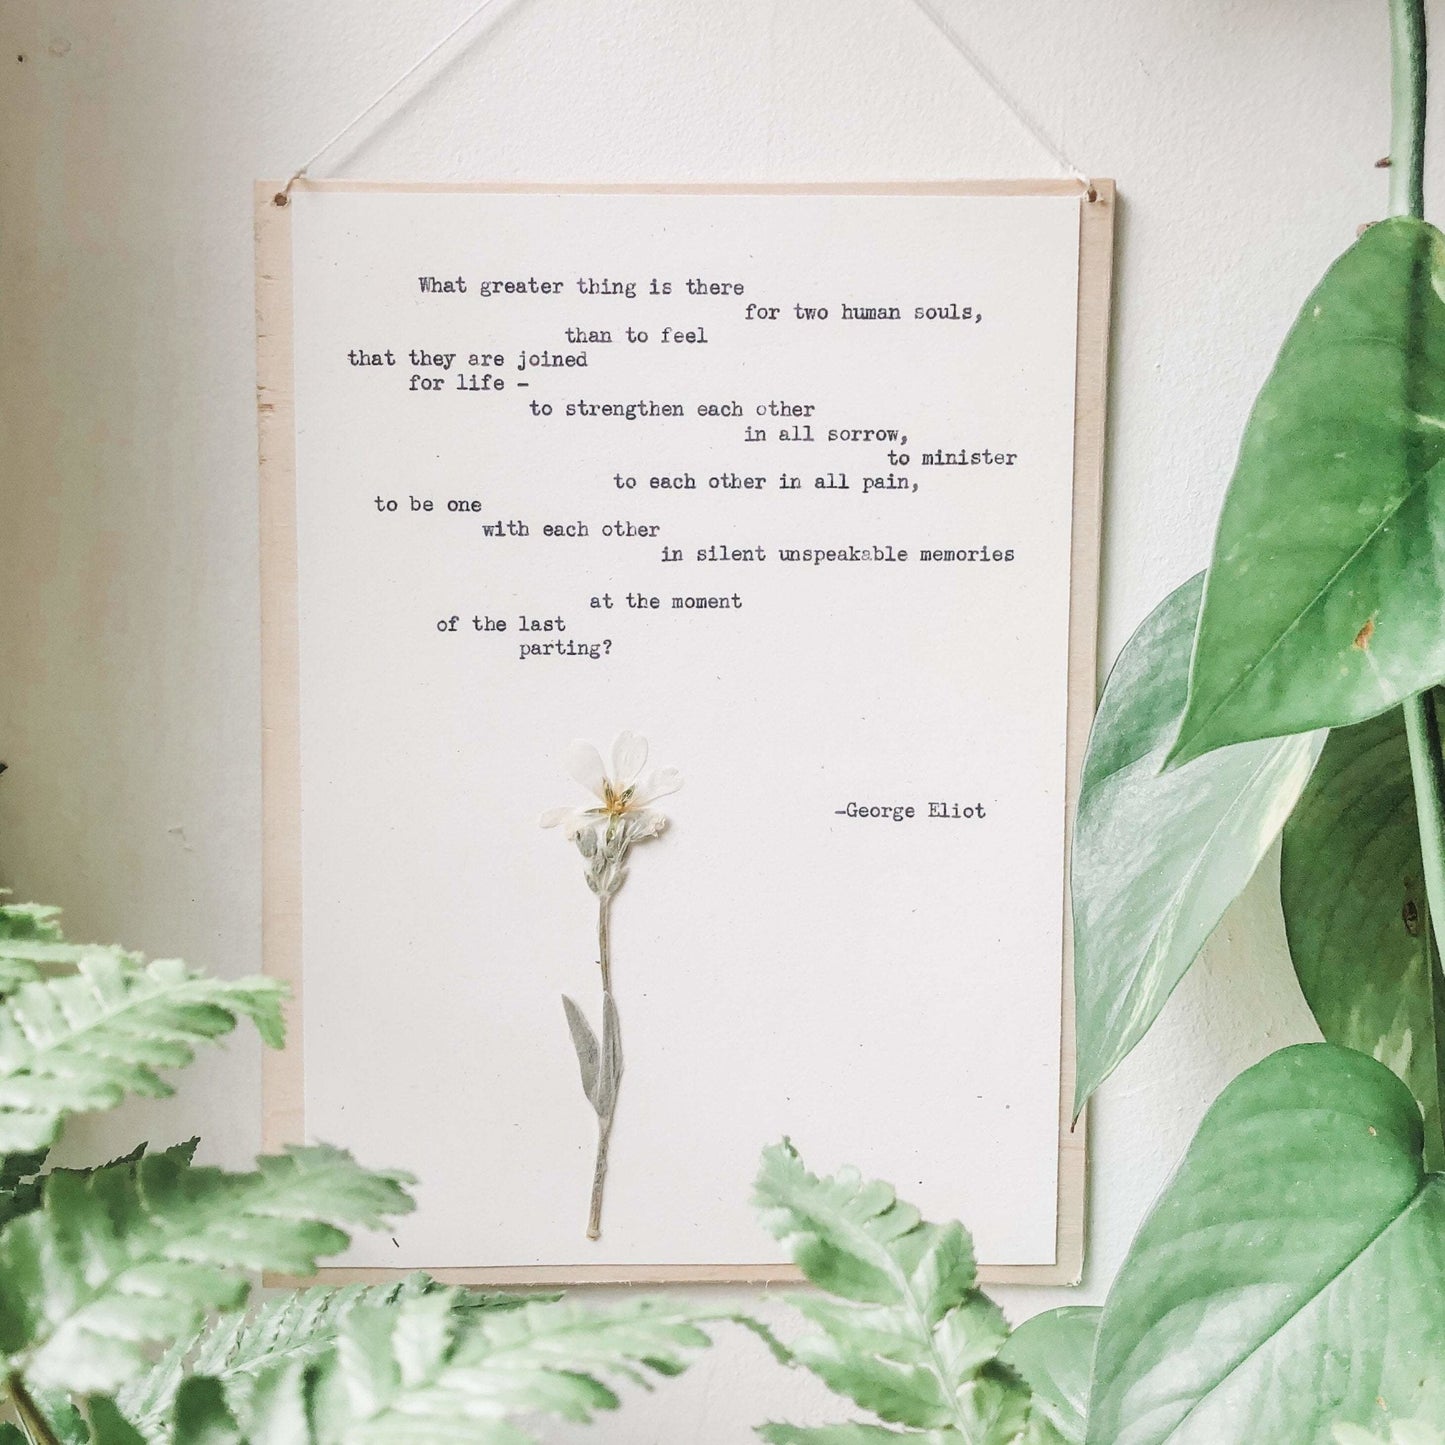 What greater thing is there
for two human souls,
than to feel
that they are joined
for life -
to strengthen each other
in all sorrow,
to minister
to each other in all pain,
to be one
with each other
in silent unspeakable memories
at the moment
of the last
parting?
-George Eliot